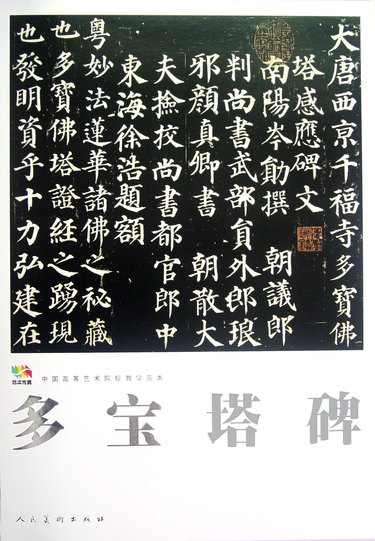 大唐西京千福寺多寶佛
塔感應碑文
南陽岑勛撰 朝議郎
判尚書武部員外郎琅
邪顏真卿書 朝散大
夫撿挍尚書都官郎中
東海徐浩題額
粵妙法蓮華諸佛之祕藏
也多寶佛塔證經之踴現
也發明資乎十力弘建在
中国高等艺术院校教学范本
多宝塔碑
人民美术出版社